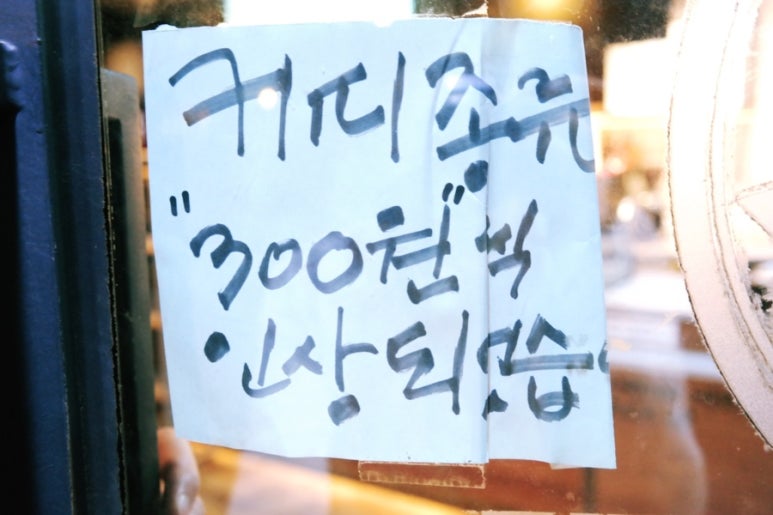 커피 종류
"300원"씩
인상 되었습